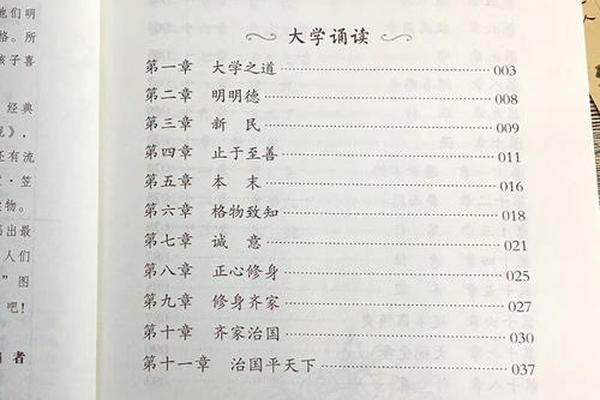 们明
格。所
孩子喜
经典
》,
还有流
·笠
物。
出最
人们
”图
吧!
者
大学诵读
第一章 大学之道 003
第二章 明明德 008
第三章 新 民 009
第四章 止于至善 011
第五章 本 末 016
第六章 格物致知 018
第七章 诚 意 021
第八章 正心修身 025
第九章 修身齐家 027
第十章 齐家治国 030
第十一章 治国平天下 037